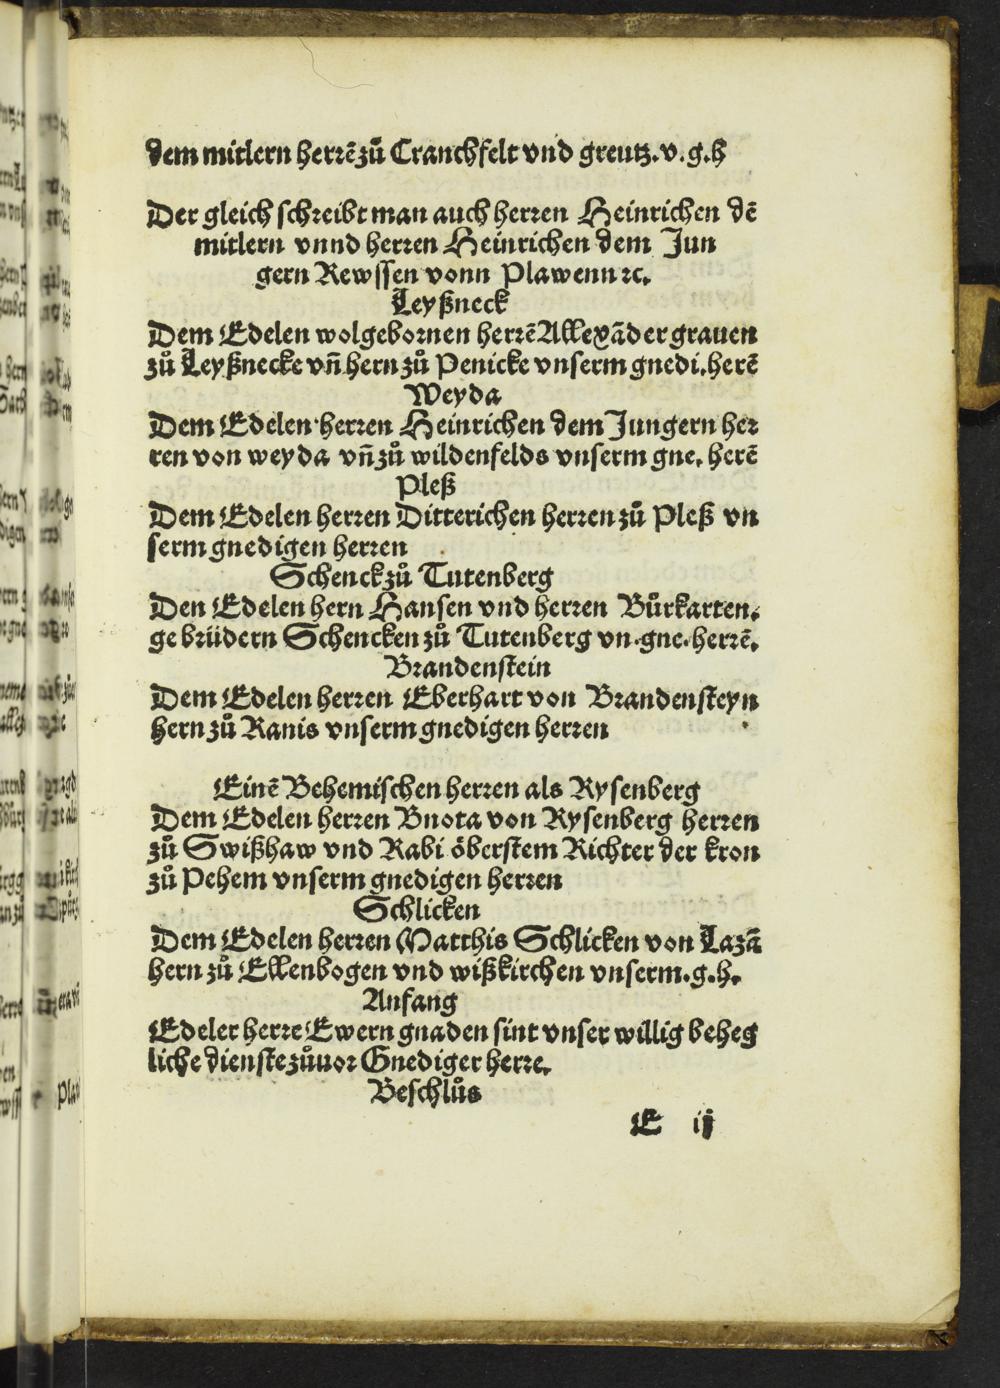 dem mitlern herrẽ zů Cranchfelt vnd greutz. v. g. h
Der gleich schreibt man auch herren Heinrichen dẽ
mitlern vnnd herren Heinrichen dem Jun
gern Rewssen vonn Plawenn ꝛc.
Leyßneck
Dem Edelen wolgebornen herrẽ Allexãder grauen
zů Leyßnecke vñ hern zů Penicke vnserm gnedi. herẽ
Weyda
Dem Edelen herren Heinrichen dem Jungern her
ren von weyda vñ zů wildenfelds vnserm gne. herẽ
Pleß
Dem Edelen herren Ditterichen herren zů Pleß vn
serm gnedigen herren
Schenck zů Tutenberg
Den Edelen hern Hansen vnd herren Bůrkarten.
gebrüdern Schencken zů Tutenberg vn. gne. herrẽ.
Brandenstein
Dem Edelen herren Eberhart von Brandensteyn
hern zů Ranis vnserm gnedigen herren
Einẽ Behemischen herren als Rysenberg
Dem Edelen herren Bnota von Rysenberg herren
zů Swißhaw vnd Rabi öberstem Richter der kron
zů Pehem vnserm gnedigen herren
Schlicken
Dem Edelen herren Matthis Schlicken von Lazã
hern zů Ellenbogen vnd wißkirchen vnserm. g. h.
Anfang
Edeler herre Ewern gnaden sint vnser willig beheg
liche dienste zůuor Gnediger herre.
Beschlůs
E ij